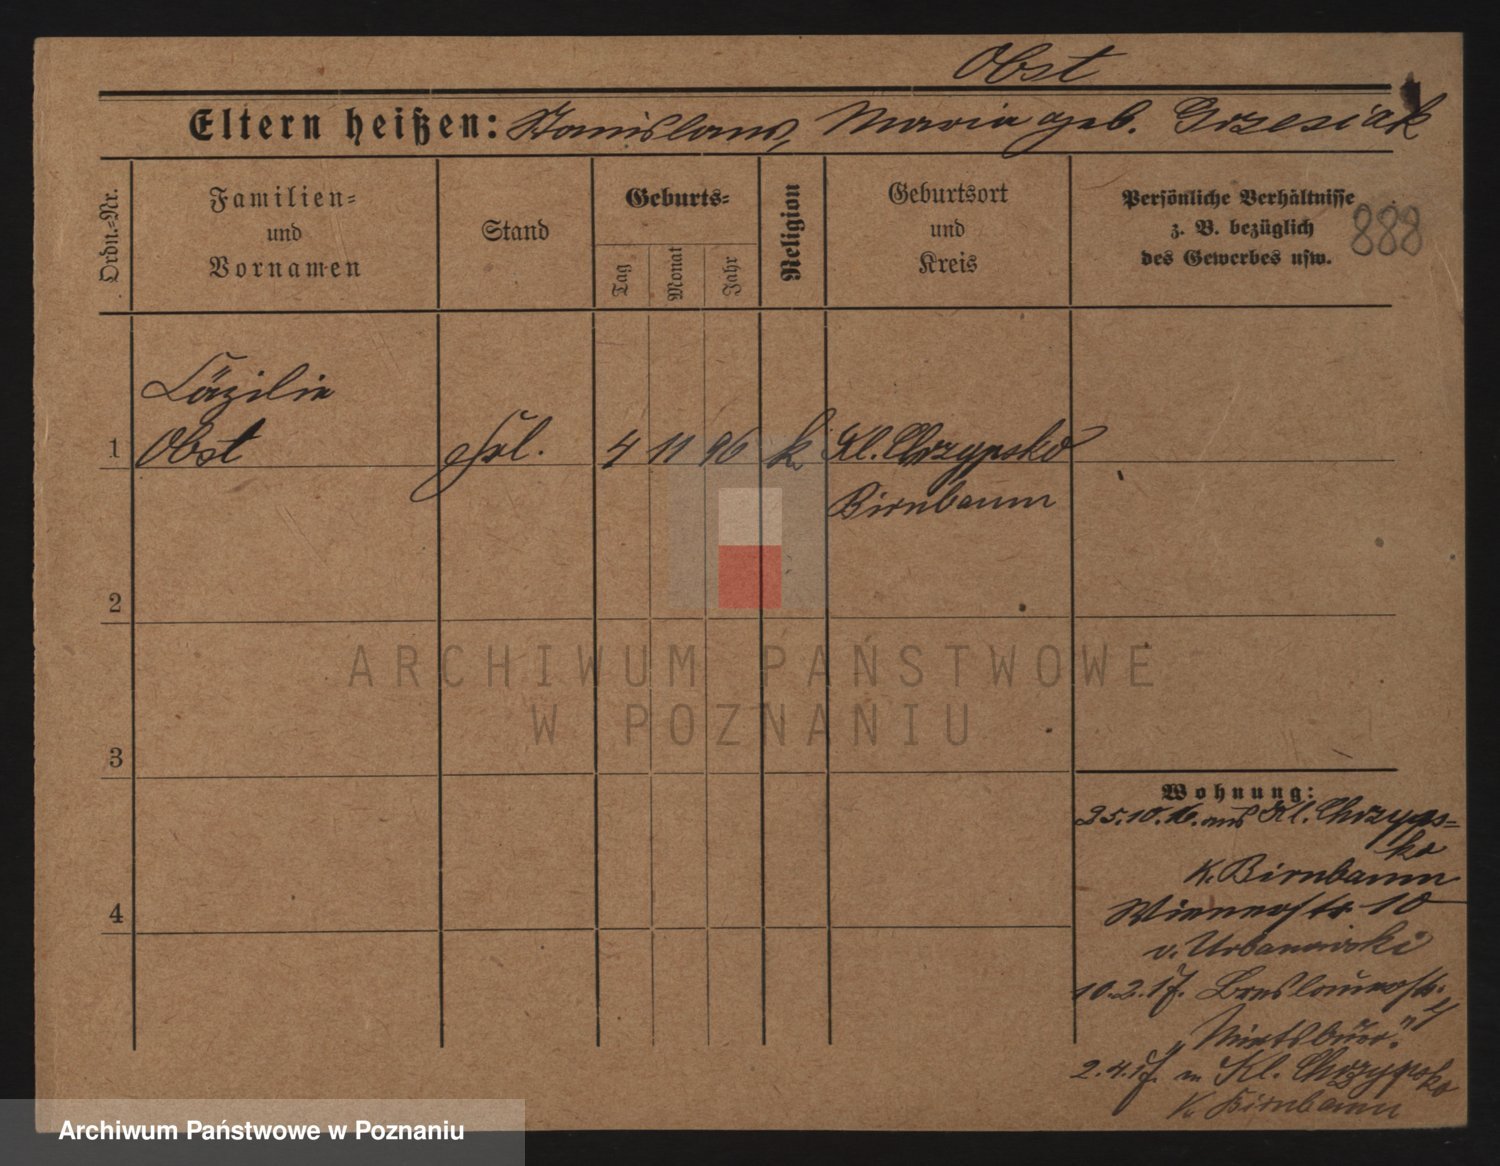 Obst
Eltern heißen: Stanislaus, Maria geb. Grzesiak
Ordn.-Nr.
Familien- und Vornamen
Stand
Geburts-
Tag
Monat
Jahr
Religion
Geburtsort und Kreis
Persönliche Verhältnisse
z. B. bezüglich
des Gewerbes usw.
888
Cäzilie
1 Obst Frl. 4 11 96 k. Kl. Chrzypsko
Birnbaum
2
ARCHIWUM PAŃSTWOWE
W POZNANIU
3
Wohnung:
25.10.16. aus Kl. Chrzyps-
ko
K. Birnbaum
Wienerstr 10
v. Urbanowski
10.2.17. Breslauerstr.
"Mietsbüro"
2.4.17. n Kl. Chrzypsko
K. Birnbaum
4
Archiwum Państwowe w Poznaniu